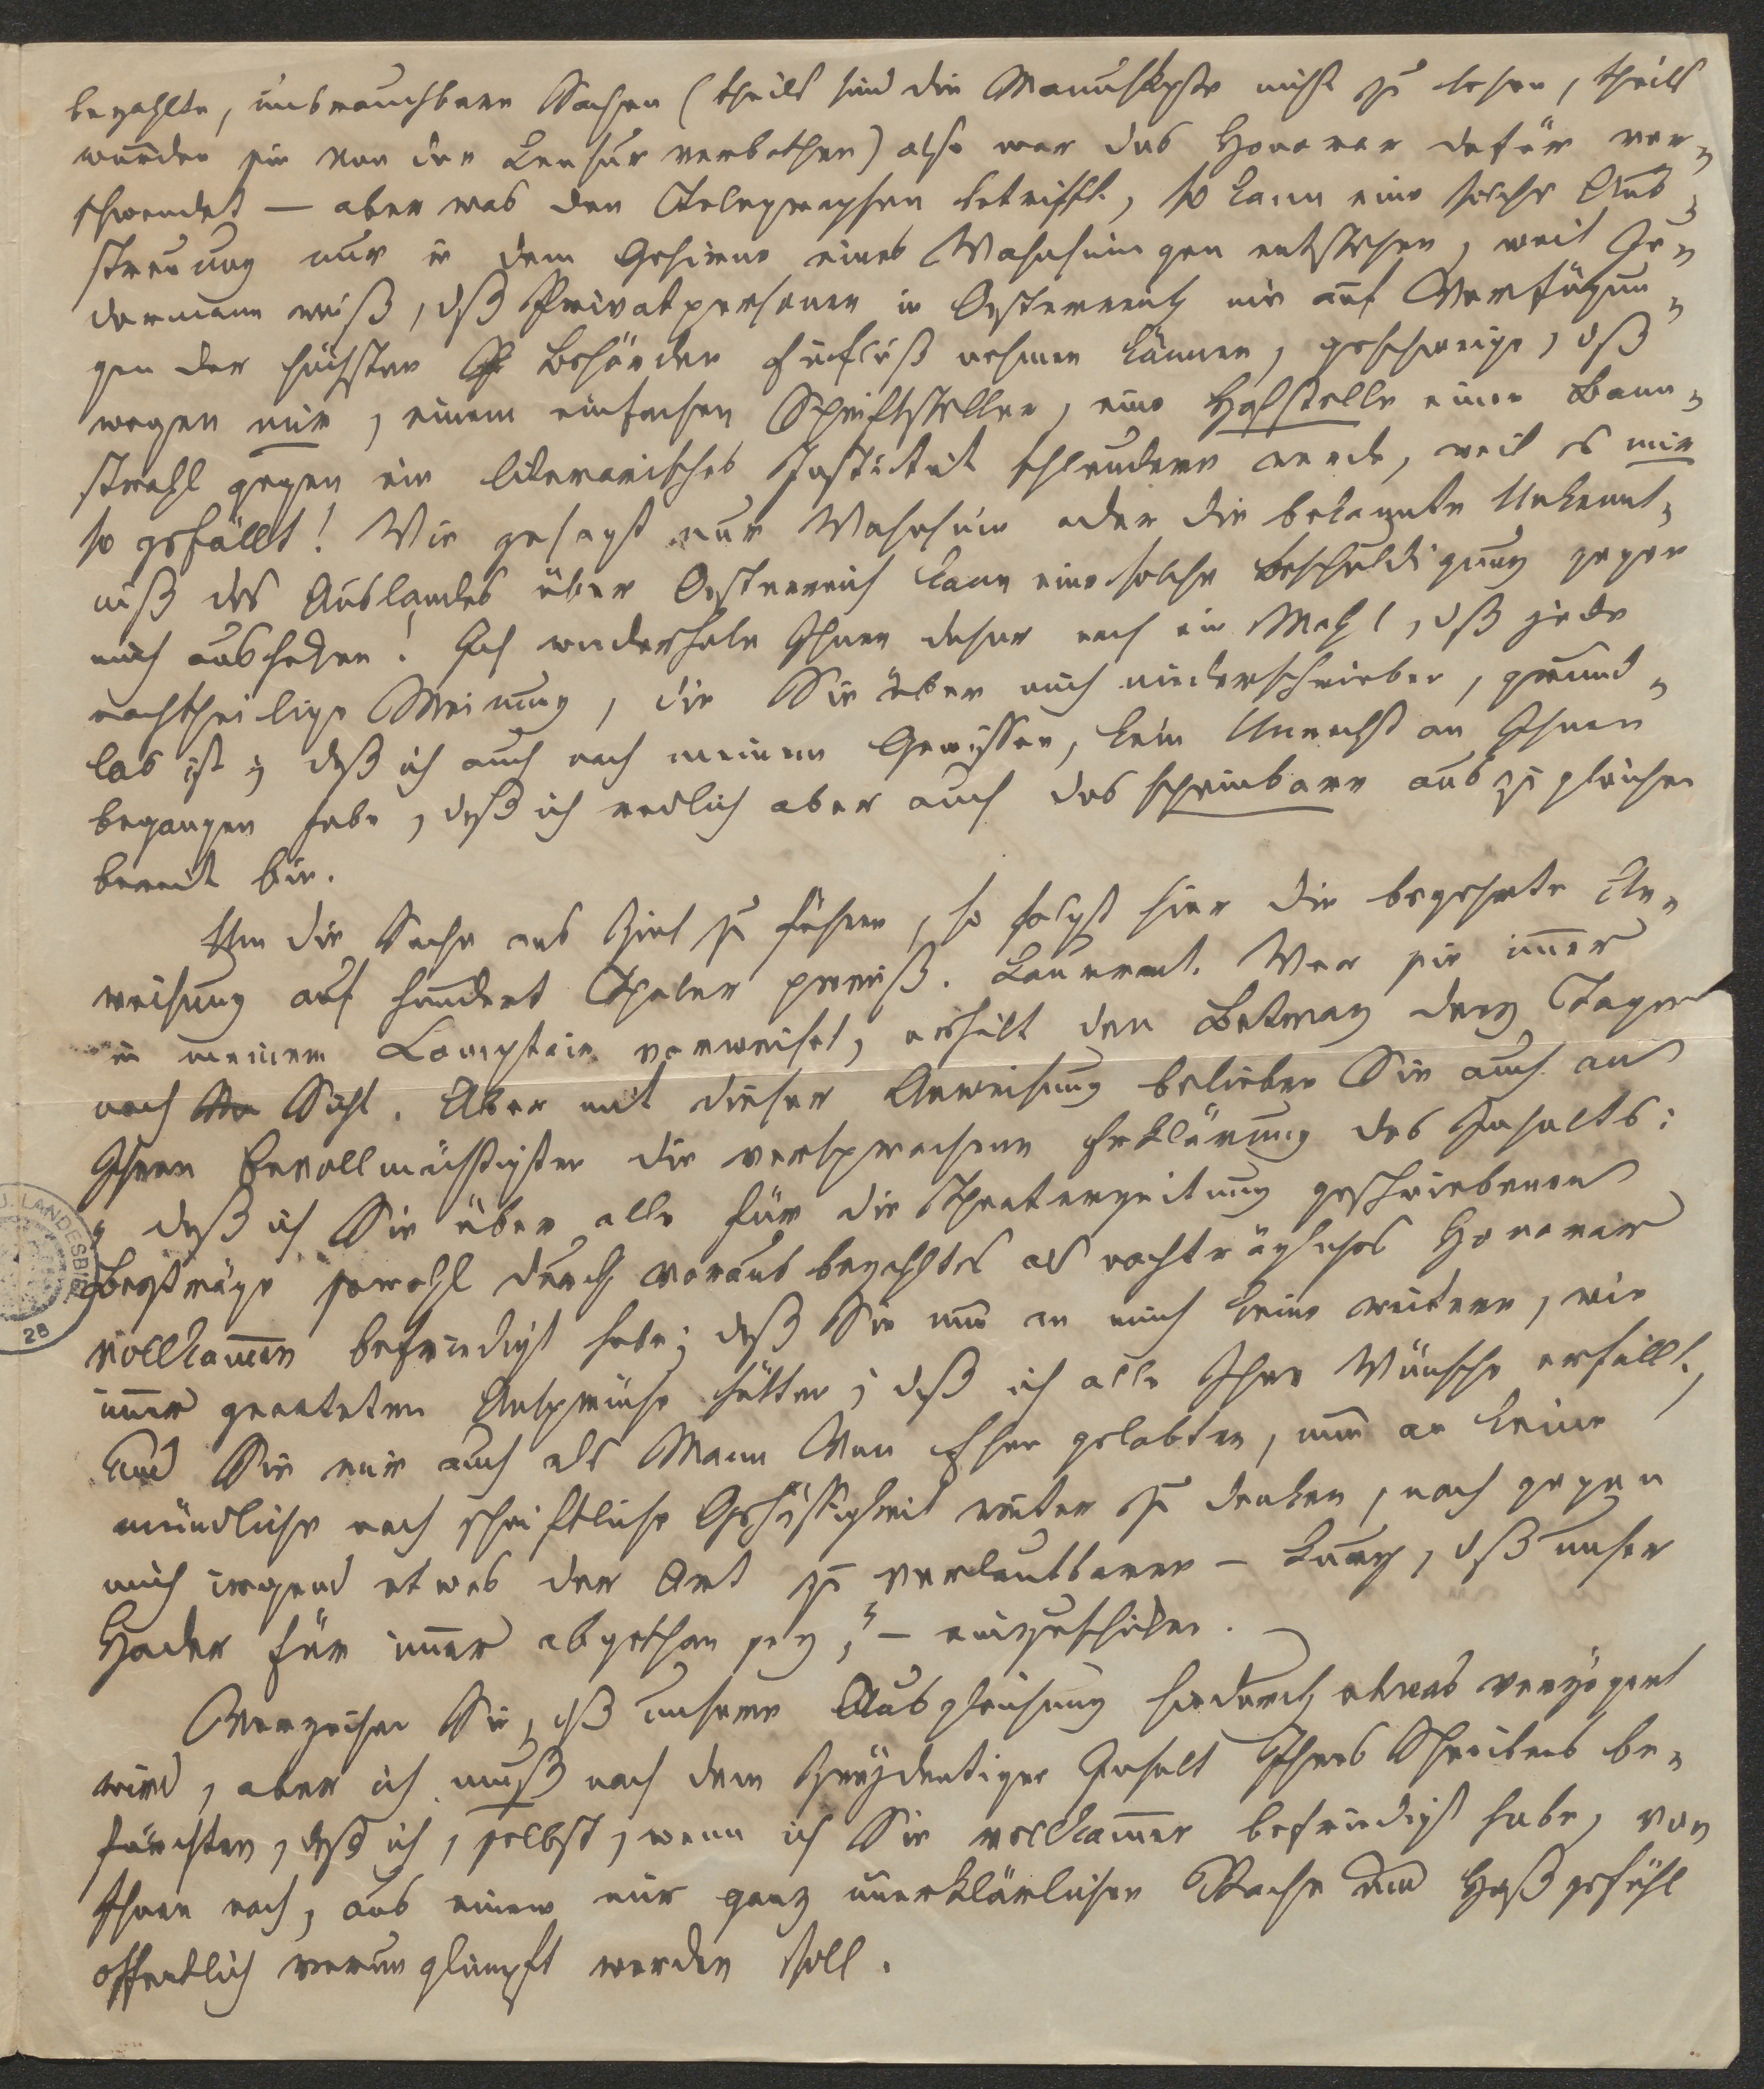 bezahlte, unbrauchbare Sachen (theils sind die Manuskripte nicht zu lesen, theils
wurden sie von der Censur verbothen) also war das Honorar dafür ver-
schwendet — aber was den Telegraphen betrifft, so kann eine solche Aus-
streuung nur in dem Gehirne eines Wahnsinnigen entstehen, weil Je-
dermann weiß, daß Privatpersonen in Oesterreich nie auf Verfügun-
gen der höchsten Behörden Einfluß nehmen können, geschweige, daß
wegen mir, einem einfachen Schriftsteller, eine Hofstelle einen Bann-
strahl gegen ein literarisches Institut schleudern werde, weil es mir
so gefällt! Wie gesagt nur Wahnsinn oder die bekannte Unkennt-
niß des Auslandes über Oesterreich kann eine solche Beschuldigung gegen
mich aushecken! Ich wiederhole Ihnen daher noch ein Mahl, daß jede
nachtheilige Meinung, die Sie über mich niederschrieben, grund-
los ist; daß ich auch nach meinem Gewissen, kein Unrecht an Ihnen
begangen habe, daß ich redlich aber auch das scheinbare auszugleichen
bereit bin.
Um die Sache ans Ziel zu führen, so folgt hier die begehrte An-
weisung auf hundert Thaler preuß. Courant. Wer sie immer
in meinem Comptoir vorweiset, erhält den Betrag drey Tage
nach Sicht. Aber mit dieser Anweisung belieben Sie auch an
Ihren Bevollmächtigten die versprochene Erklärung des Inhalts:
„daß ich Sie über alle für die Theaterzeitung geschriebenen
Beyträge sowohl durch voraus bezahltes als nachträgliches Honorar
vollkommen befriedigt habe; daß Sie nun an mich keine weitere, wie
immer geartete Ansprüche hätten; daß ich alle Ihre Wünsche erfüllt,
und Sie mir auch als Mann von Ehre gelobten, nun an keine
mündliche noch schriftliche Gehässigkeit weiter zu denken, noch gegen
mich irgend etwas der Art zu verlautbaren — kurz, daß unser
Hader für immer abgethan sey," — einzuschicken.
Verzeihen Sie, daß unsere Ausgleichung hiedurch etwas verzögert
wird, aber ich muß nach dem zweydeutigen Inhalt Ihres Schreibens be-
fürchten, daß ich, selbst, wenn ich Sie vollkommen befriedigt habe, von
Ihnen noch, aus einem mir ganz unerklärlichen Rache und Haßgefühl
öffentlich verunglimpft werden soll.
LANDESBIB
28